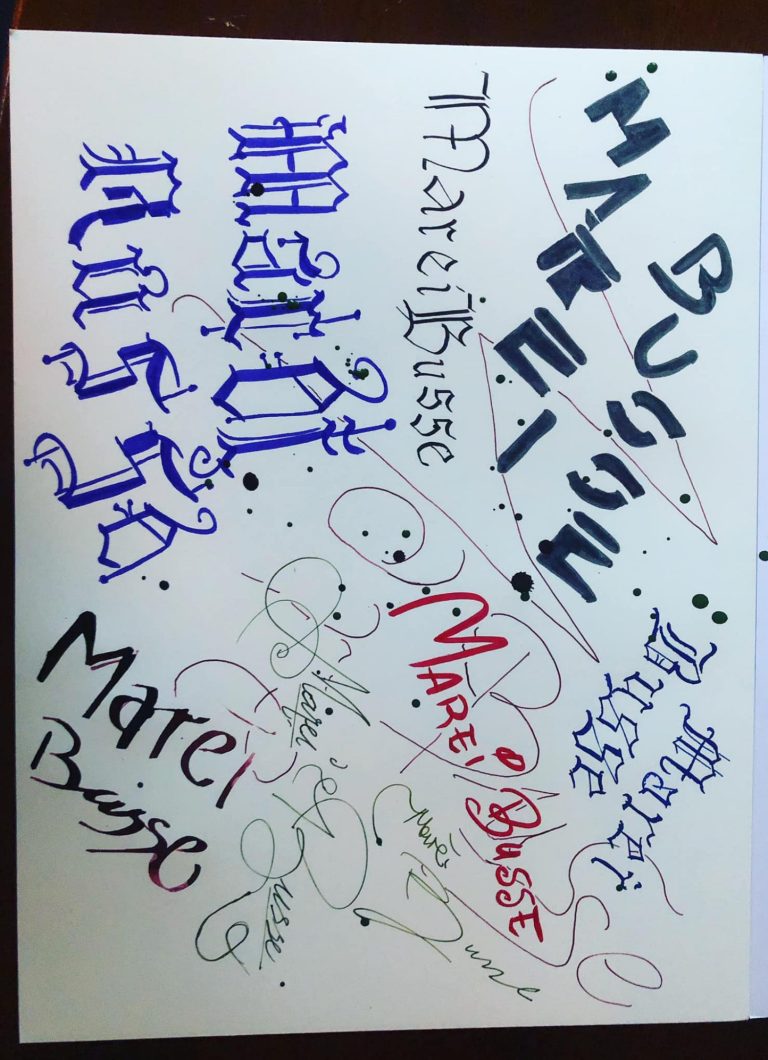 MAREI
BUSSE
Marei
Busse
Marei Busse
MAREI BUSSE
Marei Busse
Marei
Busse
Marei
Busse
Marei
Busse